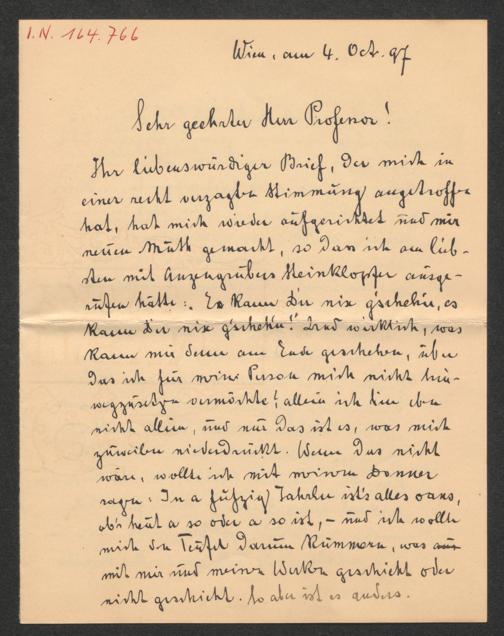 I.N. 164.766
Wien, am 4. Oct. 97
Sehr geehrter Herr Professor!
Ihr liebenswürdiger Brief, der mich in
einer recht verzagten Stimmung angetroffen
hat, hat mich wieder aufgerichtet und mir
neuen Muth gemacht, so dass ich am lieb-
sten mit Anzengrubers Steinklopfer ausge-
rufen hätte: „Es kann dir nix g'scheh'n, es
kann dir nix g'scheh'n!" Und wirklich, was
kann mir denn am Ende geschehen, über
das ich für meine Person mich nicht hin-
wegzusetzen vermöchte! allein ich bin eben
nicht allein, und nur das ist es, was mich
zuweilen niederdrückt. Wenn das nicht
wäre, wollte ich mit meinem Donner
sagen: In a fufzig Jahrln ist's alles oans,
ob's heut a so oder a so ist, – und ich wollte
mich den Teufel darum kümmern, was
mit mir und meinen Werken geschieht oder
nicht geschieht. So aber ist es anders.